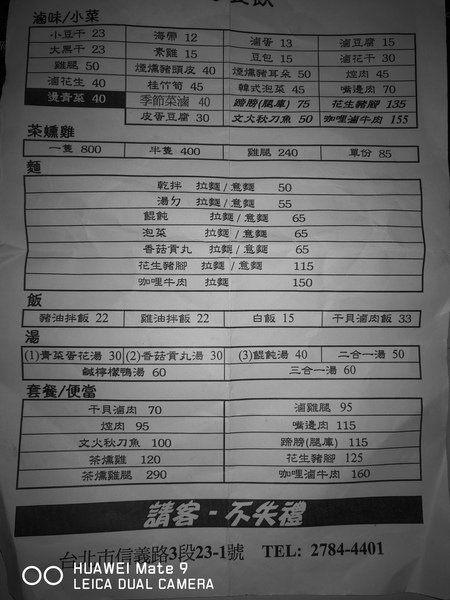 滷味/小菜
小豆干 23 海帶 12 滷蛋 13 滷豆腐 15
大黑干 23 素雞 15 豆包 15 滷花干 30
雞腿 50 煙燻豬頭皮 40 煙燻豬耳朵 50 焢肉 45
滷花生 40 桂竹筍 45 韓式泡菜 45 嘴邊肉 70
燙青菜 40 季節菜滷 40 蹄膀(腿庫) 75 花生豬腳 135
皮蛋豆腐 30 文火秋刀魚 50 咖哩滷牛肉 155
茶燻雞
一隻 800 半隻 400 雞腿 240 單份 85
麵
乾拌 拉麵/意麵 50
湯ㄉ 拉麵/意麵 55
餛飩 拉麵/意麵 65
泡菜 拉麵/意麵 65
香菇貢丸 拉麵/意麵 65
花生豬腳 拉麵/意麵 115
咖哩牛肉 拉麵 150
飯
豬油拌飯 22 雞油拌飯 22 白飯 15 干貝滷肉飯 33
湯
(1)青菜蛋花湯 30 (2)香菇貢丸湯 30 (3)餛飩湯 40 二合一湯 50
鹹檸檬鴨湯 60 三合一湯 60
套餐/便當
干貝滷肉 70 滷雞腿 95
焢肉 95 嘴邊肉 115
文火秋刀魚 100 蹄膀(腿庫) 115
茶燻雞 120 花生豬腳 125
茶燻雞腿 290 咖哩滷牛肉 160
請客-不失禮
台北市信義路3段23-1號 TEL: 2784-4401
HUAWEI Mate 9
LEICA DUAL CAMERA